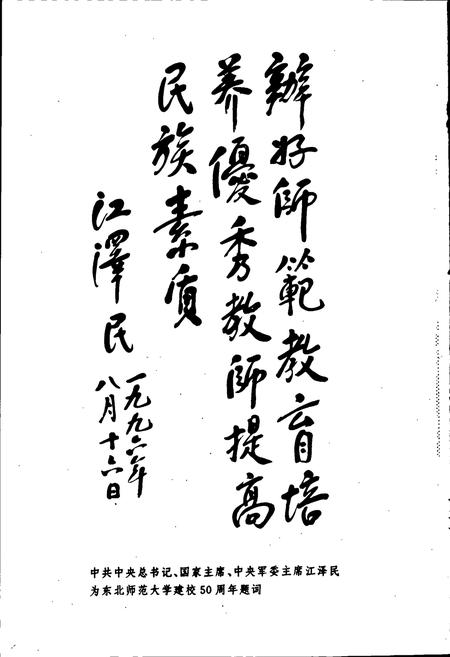 辦好師範教育培
养優秀教師提高
民族素质
江澤民
一九九六年
八月十六日
中共中央总书记、国家主席、中央军委主席江泽民
为东北师范大学建校50周年题词